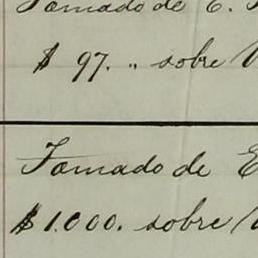 Tomado de E.
$ 97. „ sobre
Tomado de E
$ 1.000. sobre